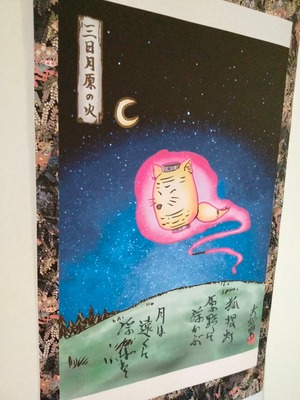 三日月原の火
狐提灯
原野に
浮かぶ
月は
遠くに